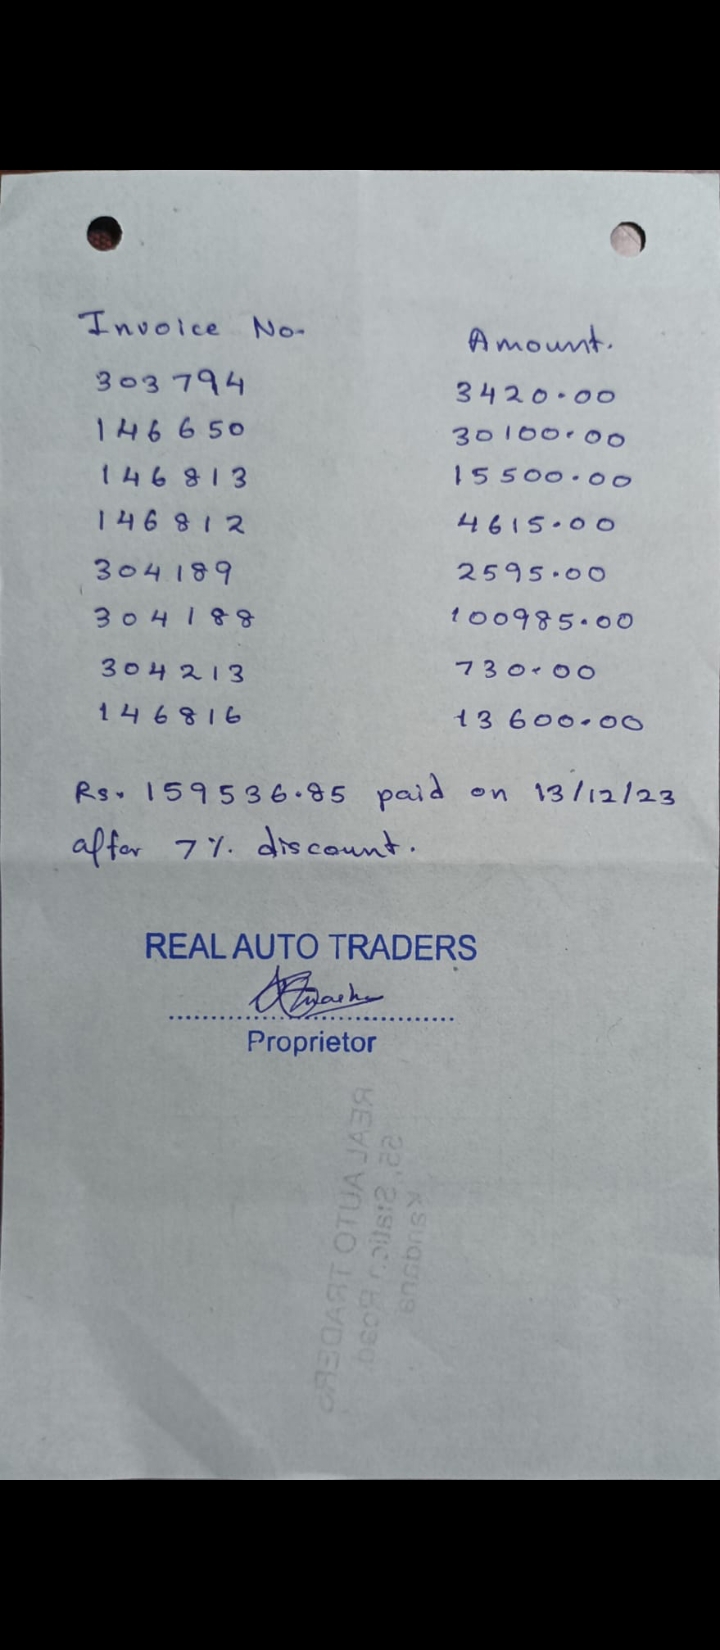 Invoice No. Amount.
303794 3420.00
146650 30100.00
146813 15500.00
146812 4615.00
304189 2595.00
304188 100985.00
304213 730.00
146816 13600.00
Rs. 159536.85 paid on 13/12/23
after 7% discount.
REAL AUTO TRADERS
Proprietor
REAL AUTO TRADERS
55, Station Road,
Kandana